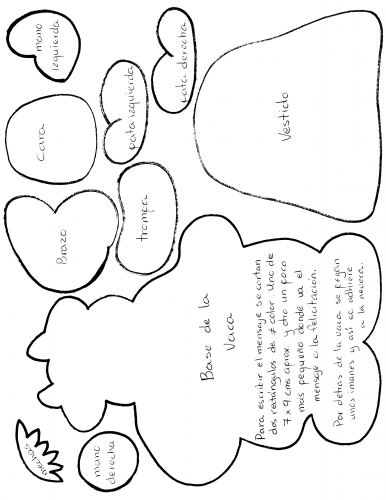 mano
izquierda
cara
pata izquierda
pata derecha
Vestido
Brazo
trompa
mechas
mano
derecha
Base de la
Vaca
Para escribir el mensaje se cortan
dos rectángulos de ≠ color. Uno de
7 x 9 cms aprox. y otro un poco
más pequeño donde va el
mensaje o la felicitación.
Por detrás de la vaca se pegan
unos imanes y así se adhiere
a la nevera.